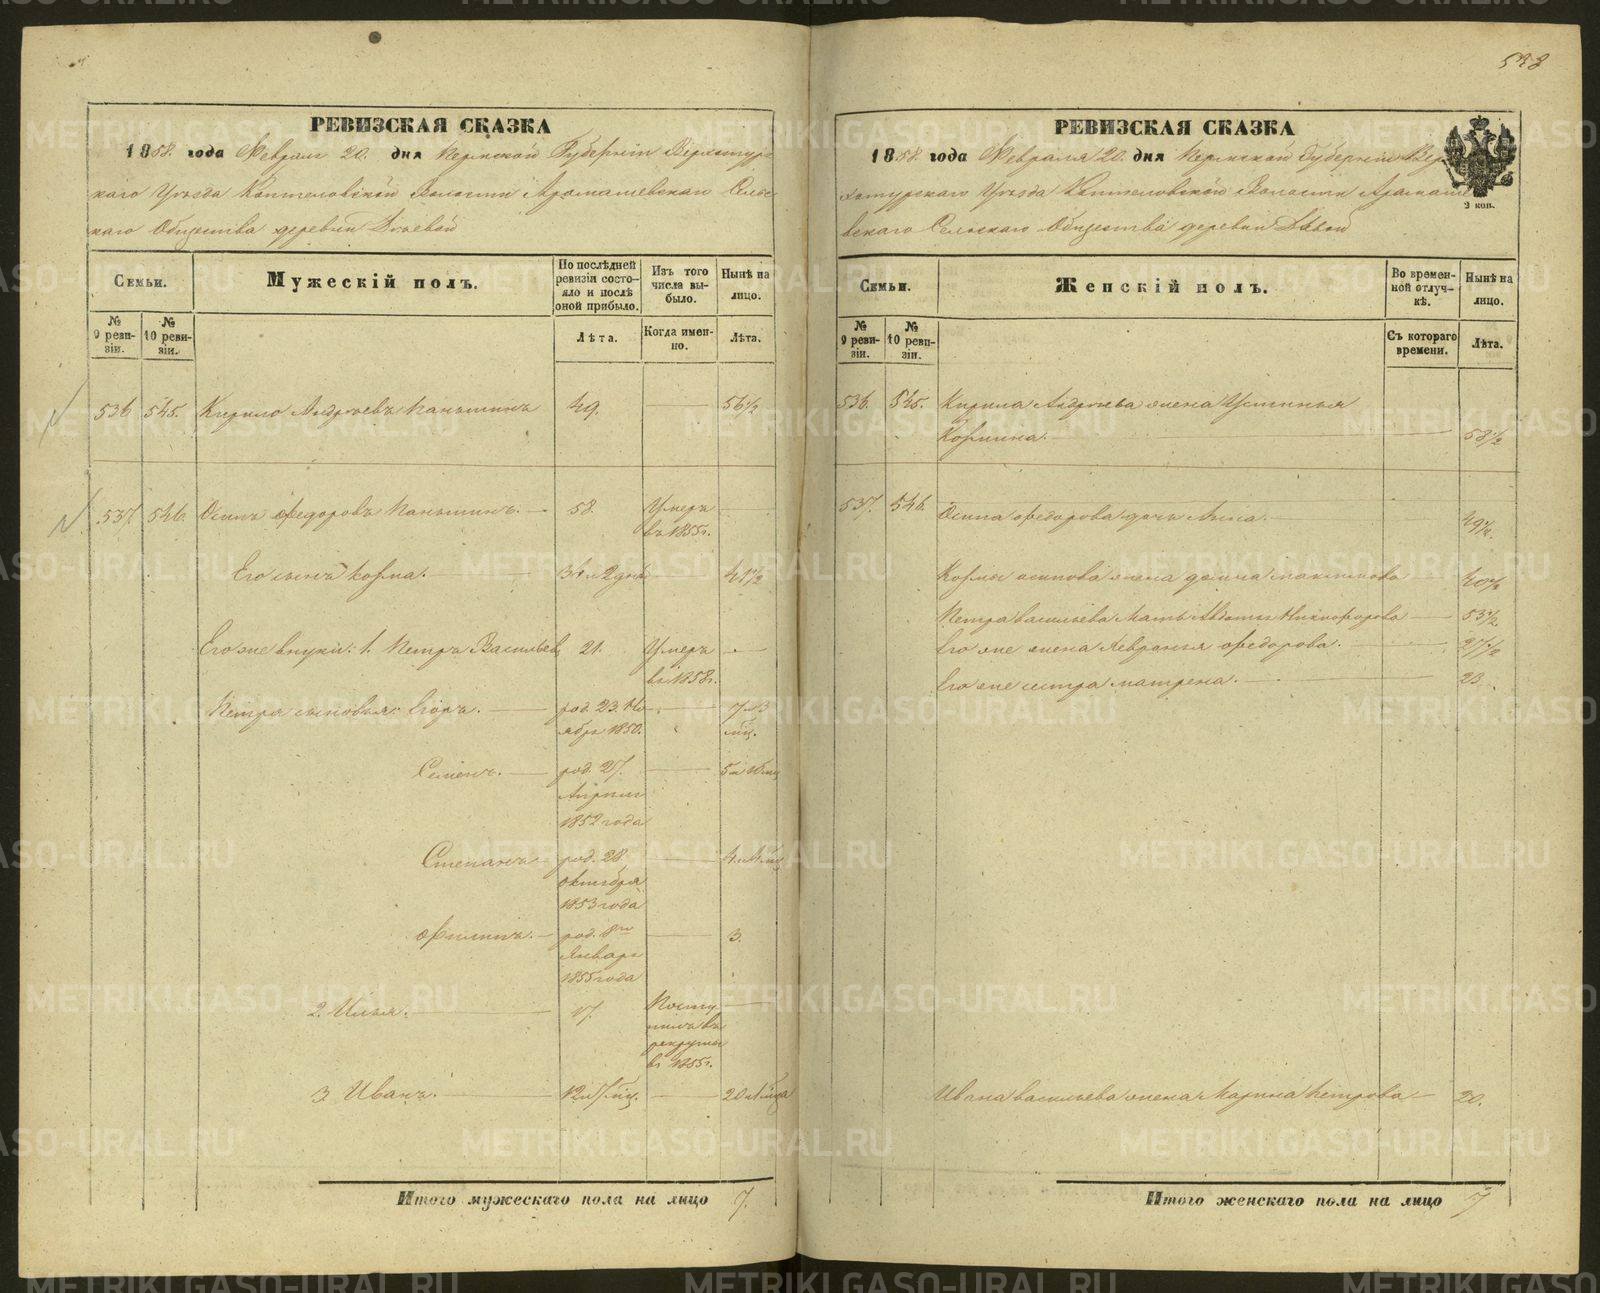 538
РЕВИЗСКАЯ СКАЗКА
1858. года Февраля 20. дня Пермской Губерніи Верхотур-
скаго Уѣзда Коптеловской Волости Арамашевскаго Сельс-
каго Общества деревни
Семьи.
Мужескій полъ.
По послѣдней ревизіи состояло и послѣ оной прибыло.
Изъ того числа выбыло.
Нынѣ на лицо.
№ 9 ревизіи.
№ 10 ревизіи.
Лѣта.
Когда именно.
Лѣта.
536 545. Кирило Андреевъ Паньшинъ 49. 56½
537. 546. Осипъ Федоровъ Паньшинъ. 58. Умеръ
въ 1855г.
Его сынъ Корма. 41½
Его же внуки: 1. Петръ Васильевъ 21. Умеръ
въ 1858г.
Петра сыновья: Егоръ. род. 23. Но-
ября 1850. 7 л 3
мѣс.
Семенъ. род. 27.
Апреля
1852 года
Степанъ род. 28
октября
1853 года
Филипъ. род. 8го
Января
1855 года
3.
2. Илья. 17. Посту-
пилъ въ
рекруты
въ 1855г.
3 Иванъ.
Итого мужескаго пола на лицо 7.
РЕВИЗСКАЯ СКАЗКА
1858. года Февраля 20. дня Пермской Губерніи Вер-
хотурскаго Уѣзда Коптеловской Волости Арамаше-
вскаго Сельскаго Общества деревни
2 коп.
Семьи.
Женскій полъ.
Во временной отлучкѣ.
Нынѣ на лицо.
№ 9 ревизіи.
№ 10 ревизіи.
Съ котораго времени.
Лѣта.
536. 545. Кирила Андреева жена Устинья
58½
537. 546. Осипа Федорова дочь Анна. 19½.
Кормы осипова жена домна максимова 40½
Петра васильева мать Авдотья Никифорова 53½
Его же жена Февранья Федорова. 27½
Его же сестра матрена. 23
Ивана васильева жена Марина Петрова 20.
Итого женскаго пола на лицо 7
METRIKI.GASO-URAL.RU